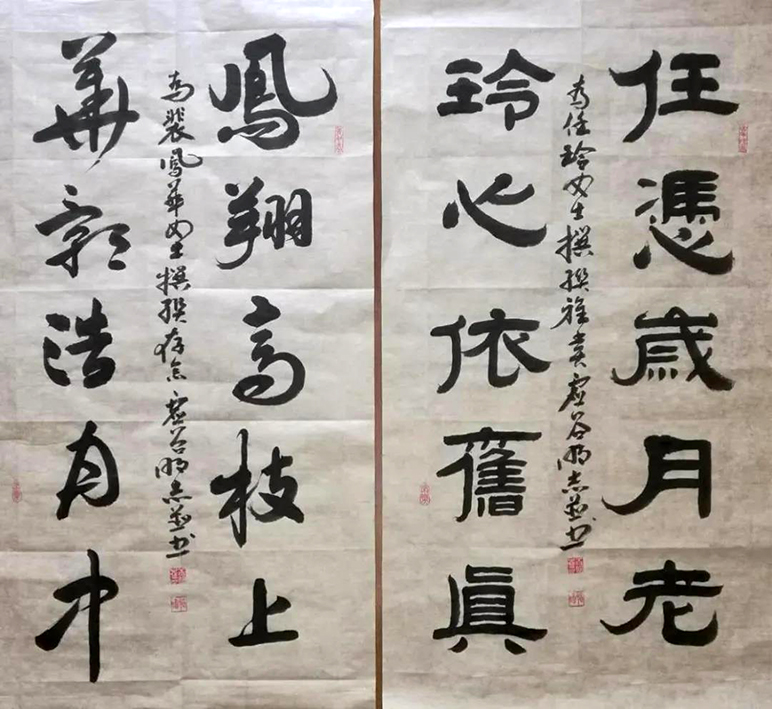 任憑歲月老
為任玲女士撰聯雅賞虛谷明志並书
玲心依舊眞
鳳翔高枝上
為裴鳳華女士撰聯存念虛谷明志並书
華浩月中